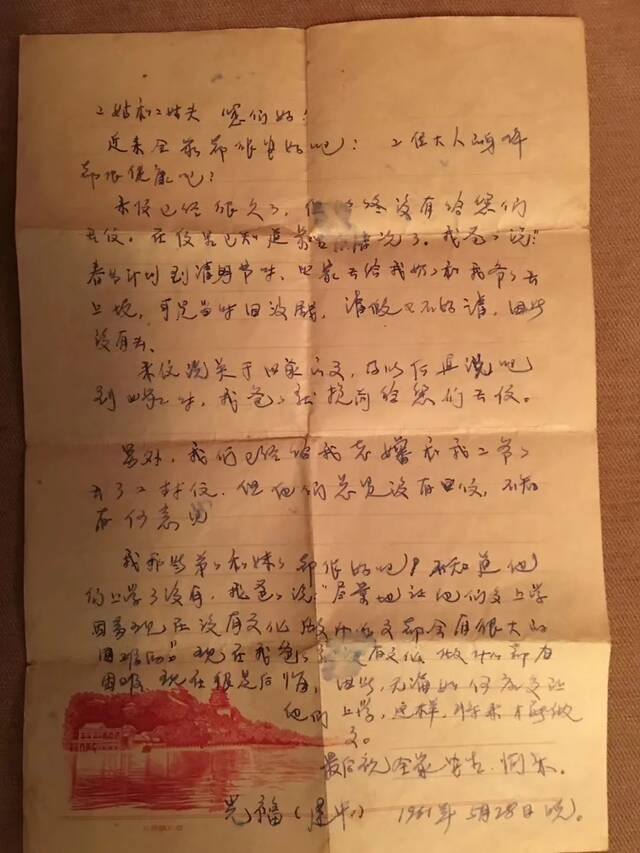 二姑和二姑夫 您们好!
近来全家都很安好吧! 二位大人身体
都很健康吧?
来信已经很久了, 但始终没有给您们
去信。在信里已知近来情况了。我爸爸说:
春节计划到清明节时, 回家去给我奶奶和我爷爷去
上坟, 可是当时因没假, 请假又不好请, 因此
没有去。
来信说关于回家的事, 以后再说吧
到时, 我爸爸提前给您们去信。
另外, 我们已经给我老婶和我二爷爷
去了二封信, 但他们总是没有回信, 不知
有何意见
我那些弟弟和妹妹都很好吧? 不知道他
们上学了没有, 我爸爸说:"尽量地让他们去上学
因为现在没有文化做什么事都会有很大的
困难的" 现在我爸爸没有文化, 做什么都有
困难, 现在很是后悔, 因此, 无论如何应该让
他们上学, 这样, 将来才能做
事。
最后祝全家安吉、阿尔。
光福 1961年5月28日晚。